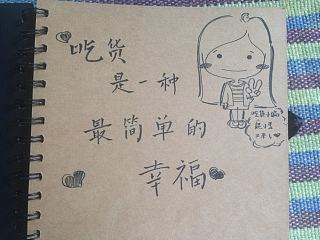 吃货
是一种
最简单的
幸福